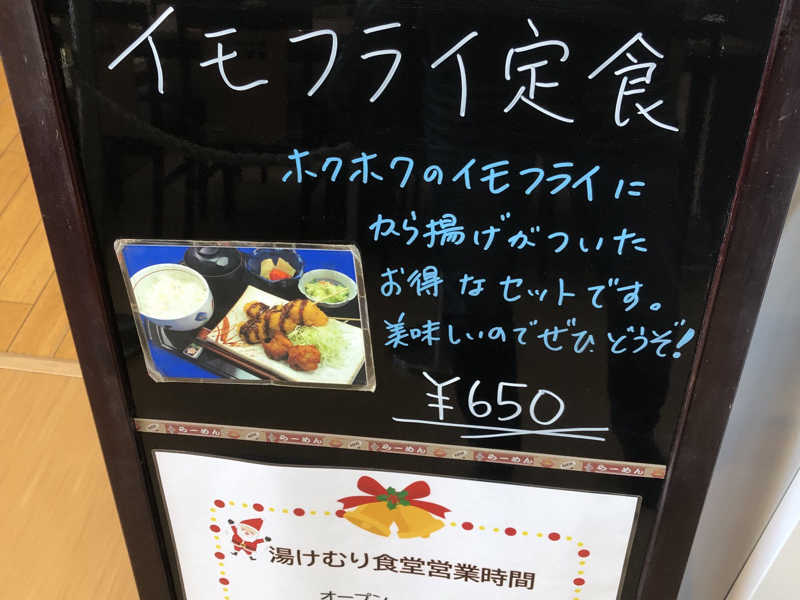 イモフライ定食
ホクホクのイモフライに
から揚げがついた
お得なセットです。
美味しいのでぜひどうぞ!
¥650
らーめん らーめん らーめん らーめん らーめん
湯けむり食堂営業時間
オープン